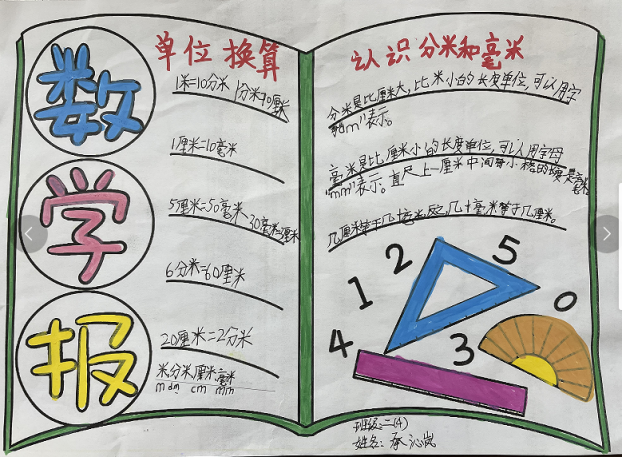 数
学
报
单位换算
1米=10分米 1分米=10厘米
1厘米=10毫米
5厘米=50毫米 30毫米=3厘米
6分米=60厘米
20厘米=2分米
米分米厘米毫米
m dm cm mm
认识分米和毫米
分米是比厘米大，比米小的长度单位，可以用字
"dm"表示。
毫米是比厘米小的长度单位，可以用字母
"mm"表示。直尺上一厘米中间每小格的长度是毫米
几厘米等于几十毫米，几十毫米等于几厘米。
1
2
5
0
4
3
班级:二(4)
姓名: